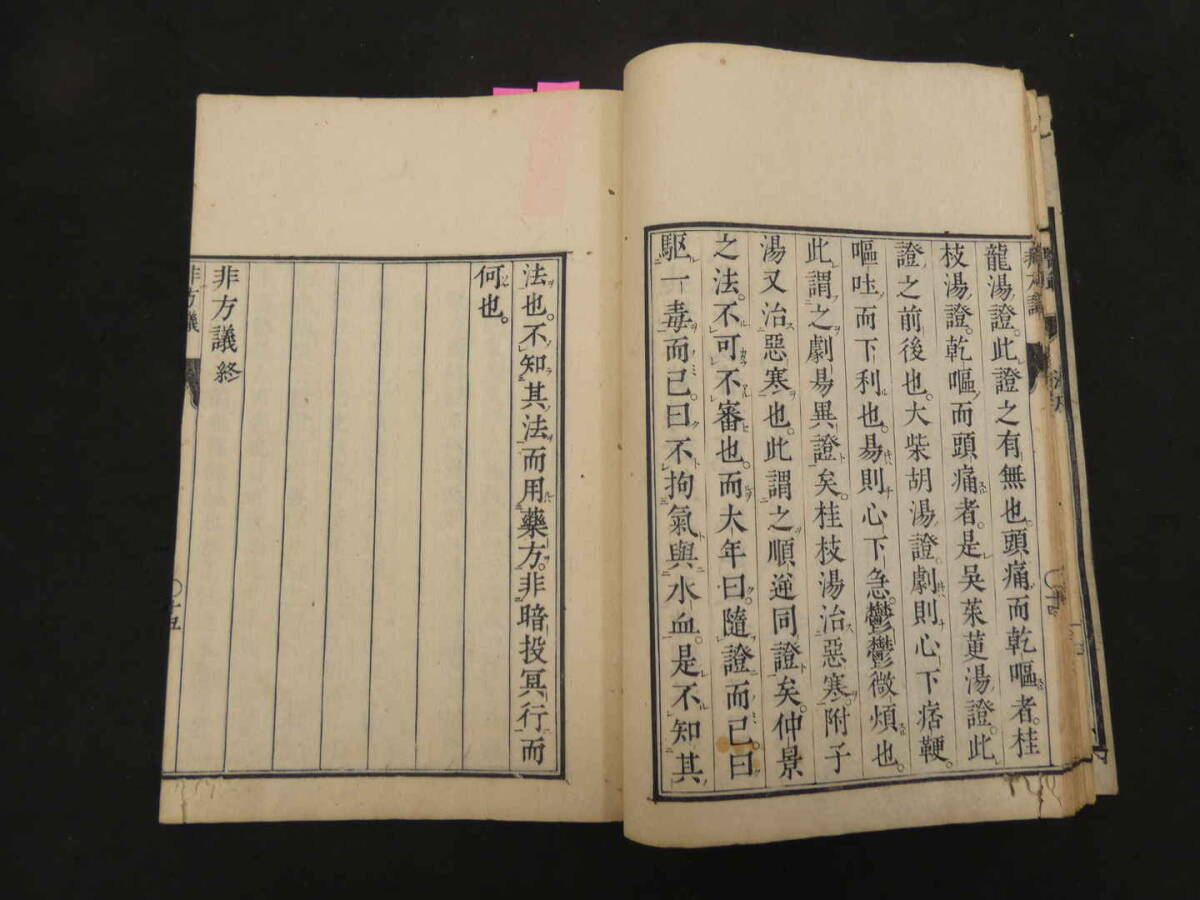 龍湯證。此證之有無也。頭痛而乾嘔者。桂
枝湯證。乾嘔而頭痛者。是吳茱萸湯證。此
證之前後也。大柴胡湯證。劇則心下痞鞕。
嘔吐而下利也。易則心下急。鬱鬱微煩也。
此謂之劇易異證矣。桂枝湯治惡寒。附子
湯又治惡寒也。此謂之順逆同證矣。仲景
之法。不可不審也。而大年曰。隨證而已。曰
駆一毒而已。曰不拘氣與水血。是不知其
法也。不知其法而用藥方。非暗投冥行而
何也。
非方議終
非方議
〇十五